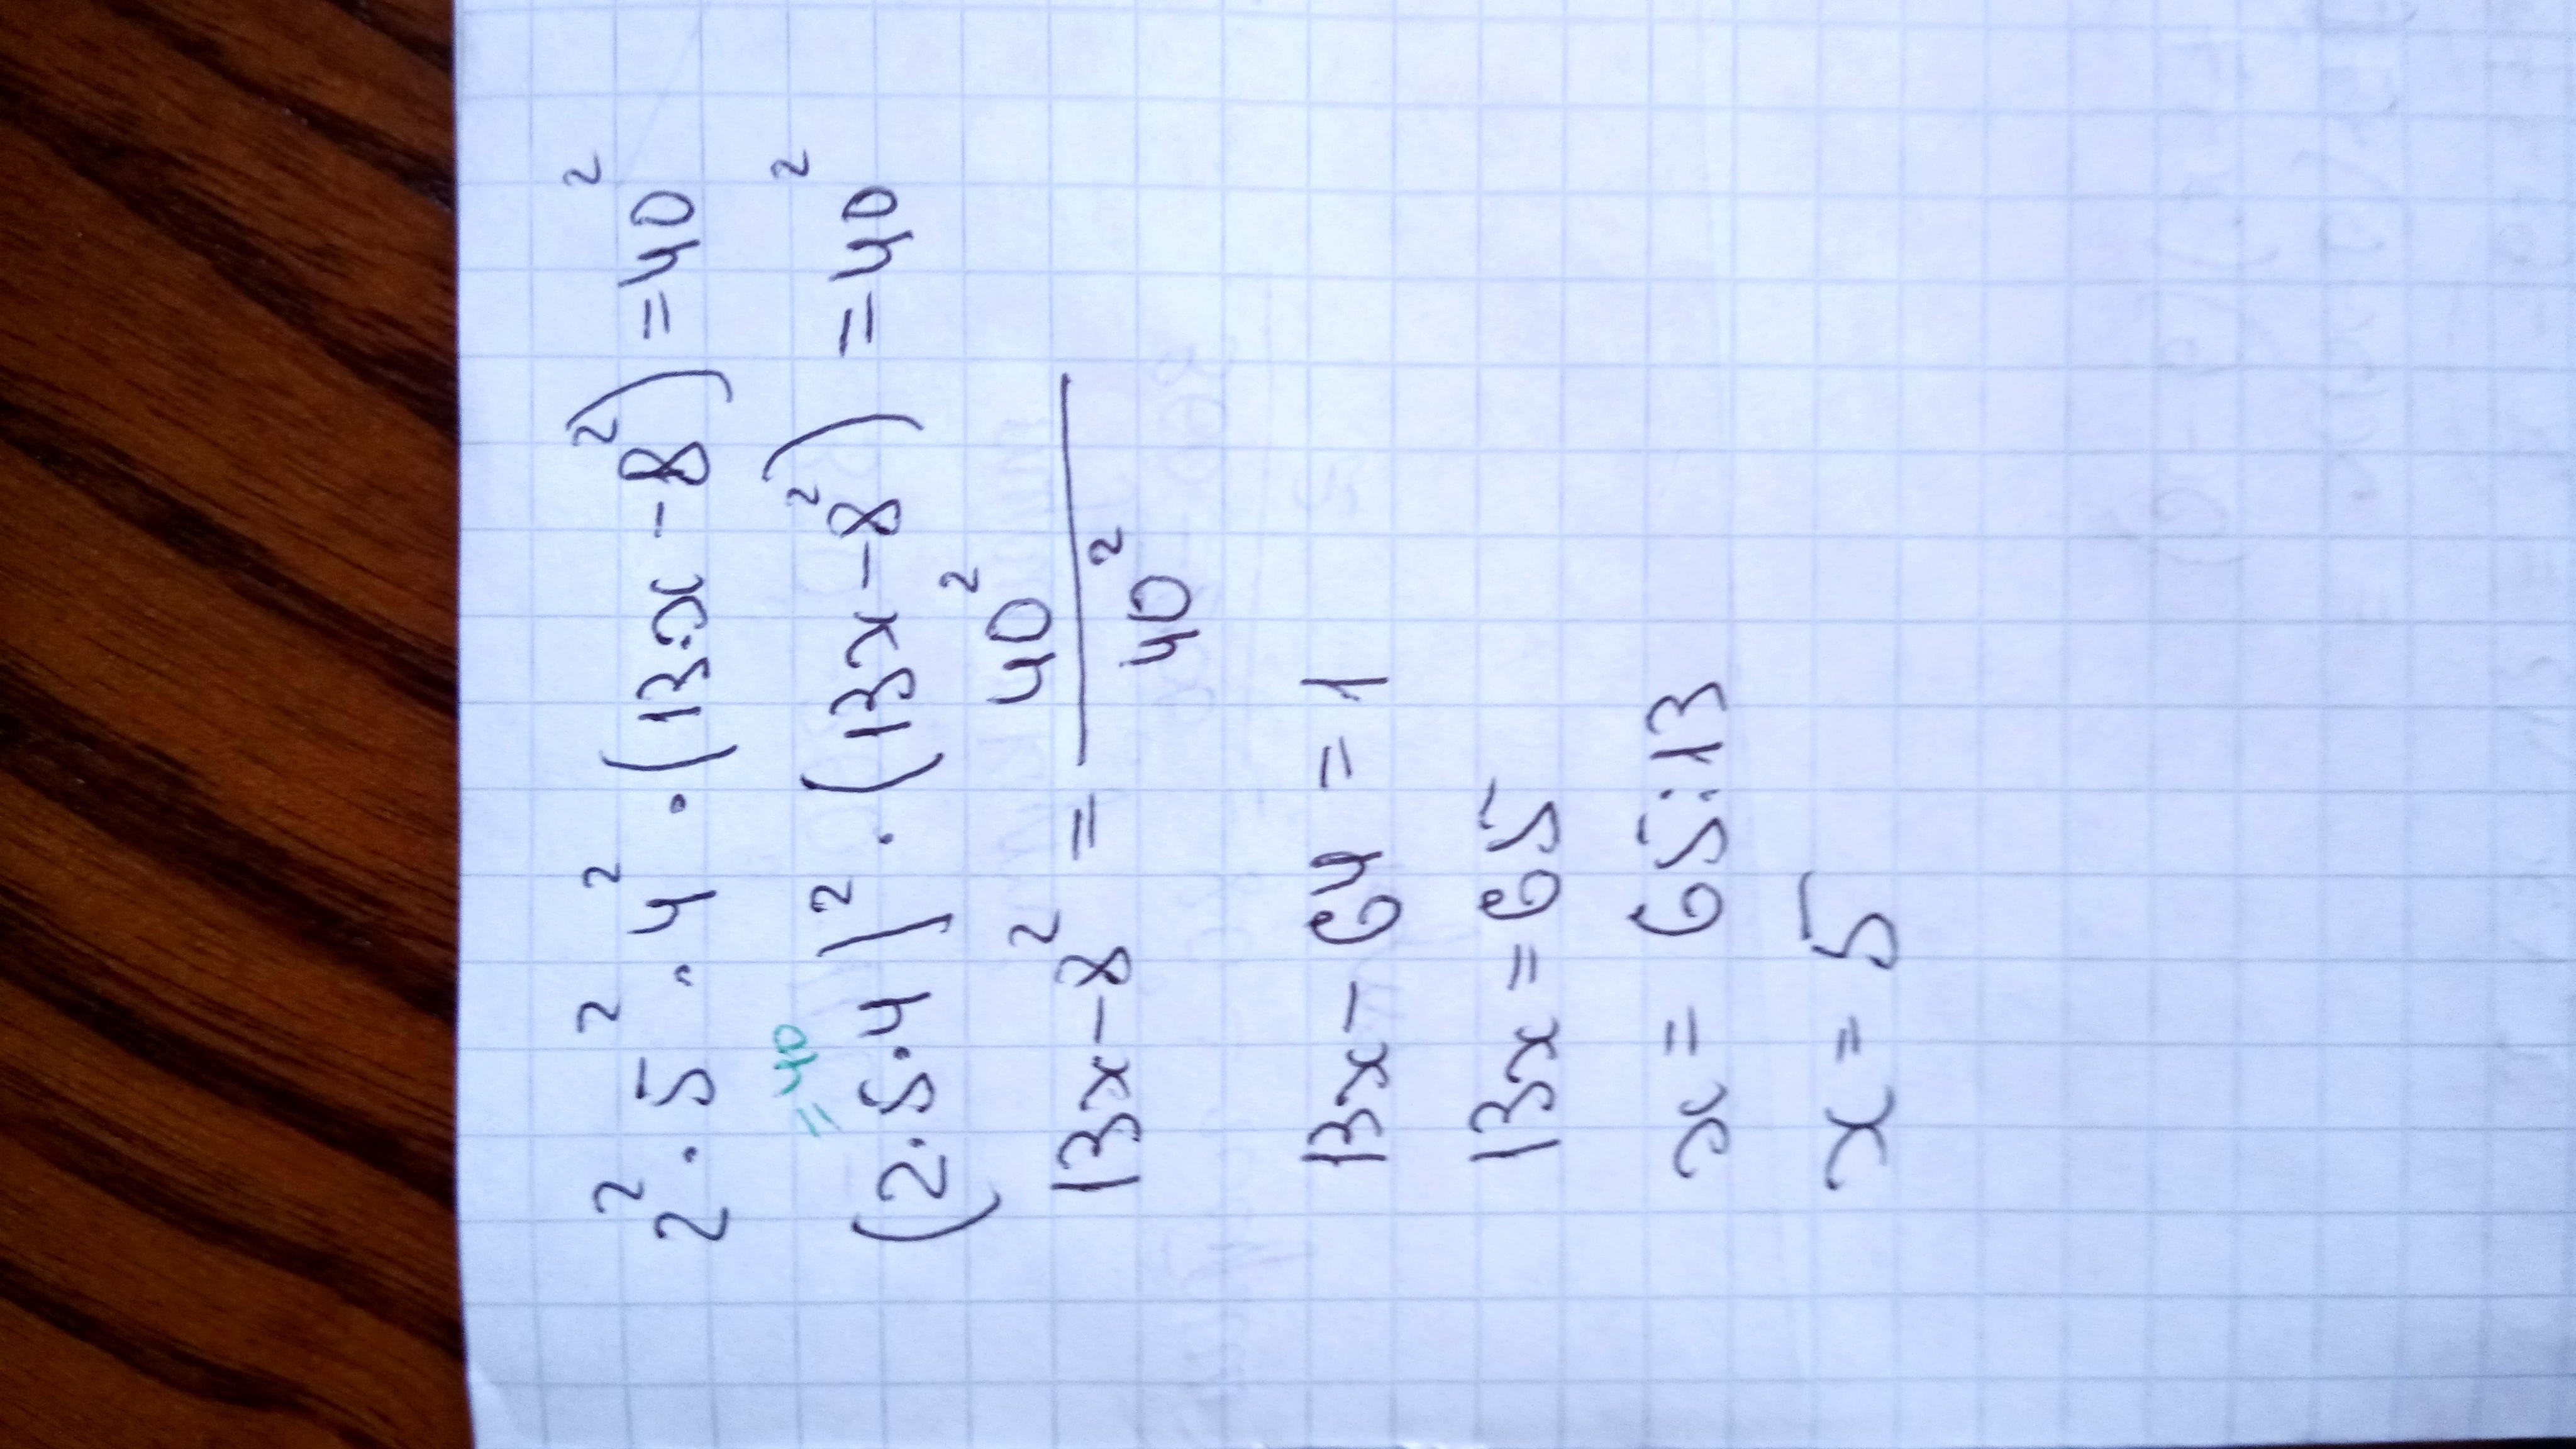 2² · 5² · 4² · (13·x - 8²) = 40²
= 40
(2 · 5 · 4)² · (13x - 8²) = 40²
13x - 8² = 40² / 40²
13x - 64 = 1
13x = 65
x = 65 : 13
x = 5